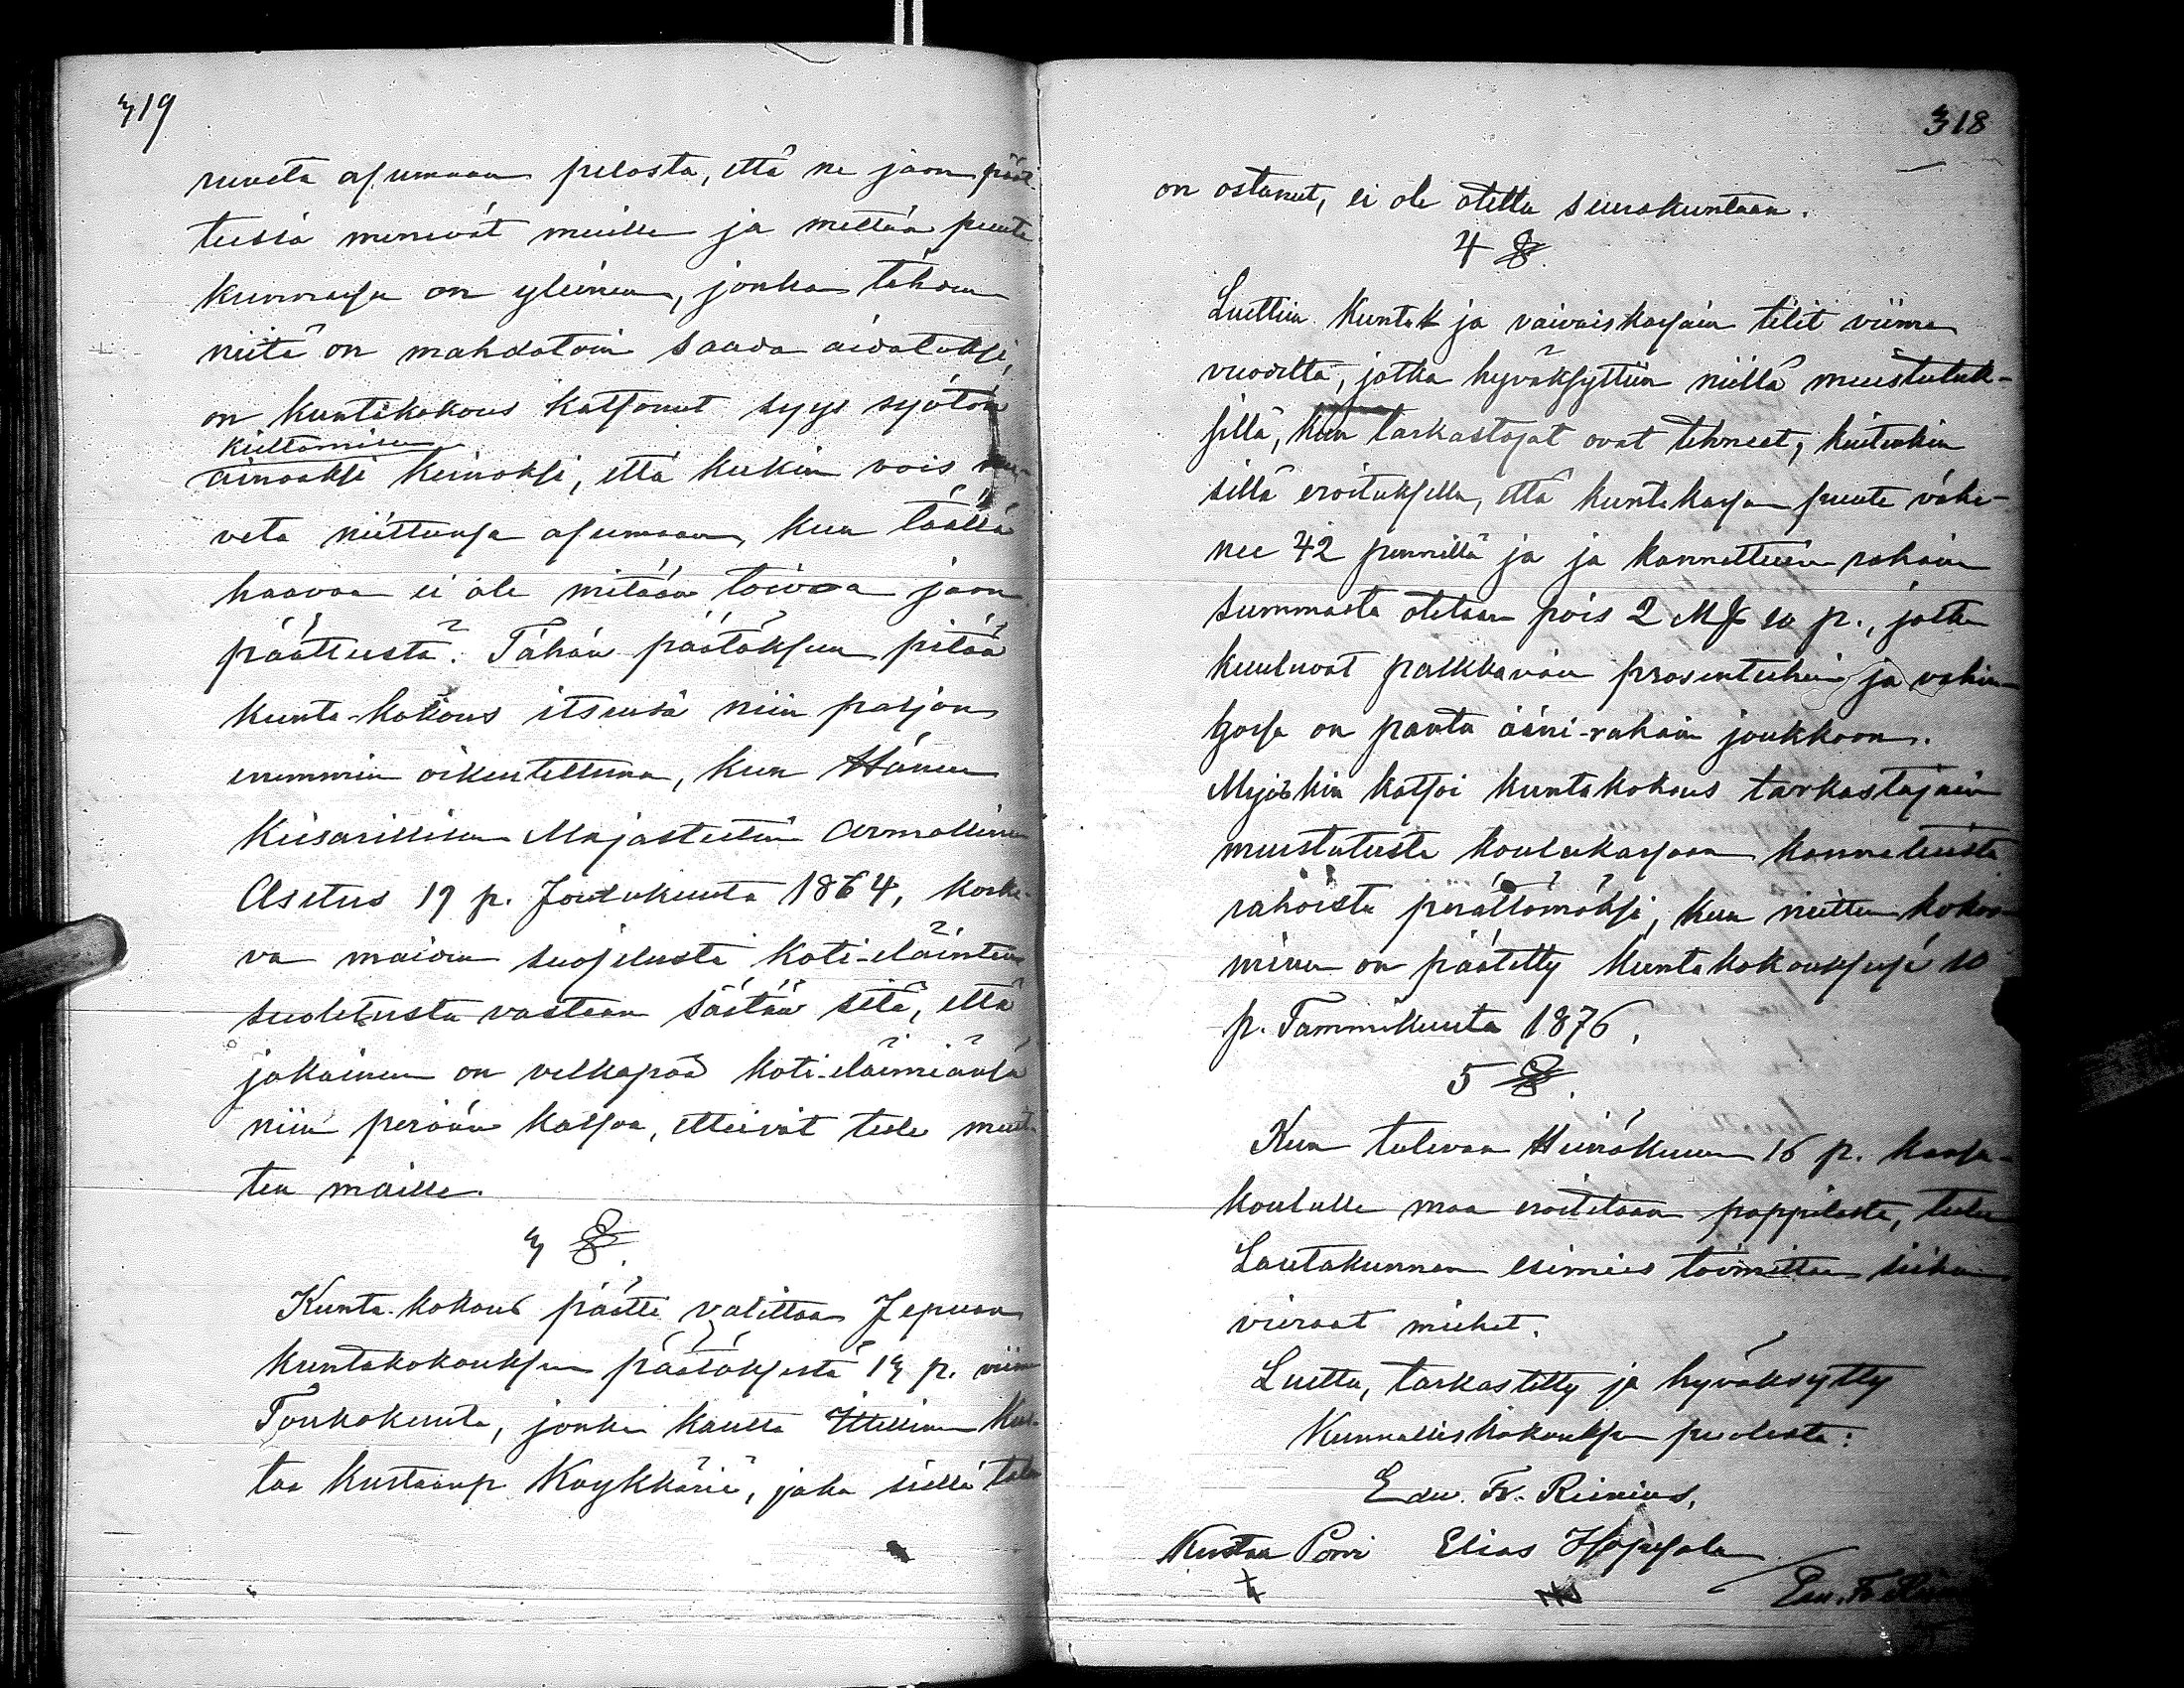 319
ruveta ajumaan pelosta, että ne jaon päät-
teissä menevät muille ja mettän puute
kunnassa on yleinen, jonka tähden
niitä on mahdotoin saada aidatuksi,
on kuntakokous katsonut syys syötön
kieltämisen
ainoaksi keinoksi, että kukin vois ru-
veta niittunsa ajumaan, kun täällä
haavaa ei ole mitään toivoa jaon
päätteestä. Tähän päätöksen pitää
kunta-kokous itsensä niin paljon
enemmin oikeutettuna, kun Hänen
Keisarillisen Majesteetin Armollinen
Asetus 19 p. Joulukuuta 1864, koske-
va maiden suojelusta koti-eläinten
suoletusta vastaan säätää sitä, että
jokainen on velkapää koti-eläimiänsä
niin perään katsoa, etteivät tule muit-
ten maille.
3 §.
Kunta-kokous päätti valittaa Jepuan
kuntakokouksen päätöksestä 13 p. viime
Toukokuuta, jonka kautta Itellinen Kus-
taa Kustaanp Koykkäriä, joka siellä talon
318
on ostanut, ei ole otettu seurakuntaan.
4 §.
Luettiin kunta ja vaivaiskassain tilit viime
vuodelta, jotka hyväksyttiin niillä muistutuk-
sillä, kun tarkastajat ovat tehneet, kuitenkin
sillä eroituksella, että kuntakassan puute vähe-
nee 42 pennillä ja ja kannettuin rahain
summasta otetaan pois 2 Mk 10 p., jotka
kuuluvat palkkavään prosentteihin ja vahin-
gossa on pantu ääni-rahain joukkoon.
Myöskin katsoi kuntakokous tarkastajain
muistutusta koulukassaan kannetuista
rahoista perättömäksi, kun niitten kokoo-
minen on päätetty kuntakokouksessa 10
p. Tammikuuta 1876.
5 §.
Kun tulevan Heinäkuun 16 p. kansa-
koululle maa eroitetaan pappilasta, tulee
Lautakunnan esimies toimittaa siihen
vieraat miehet.
Luettu, tarkastettu ja hyväksytty
Kunnalliskokouksen puolesta:
Edu. Fr. Rinius,
Kustaa Porri Elias
Edu. Fr.